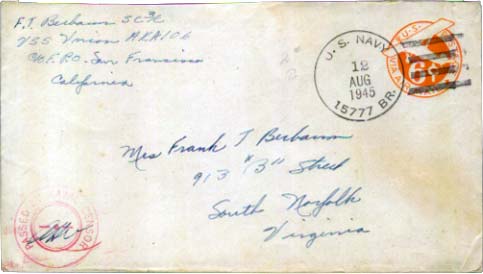 F. T. Berbaum SC3C
USS Union AKA 106
C/o F.P.O. San Francisco
California
U. S. NAVY
12
AUG
1945
15777 BR.
U.S.
6¢
Mrs Frank T Berbaum
913 "B" Street
South Norfolk
Virginia
PASSED BY NAVAL CENSOR